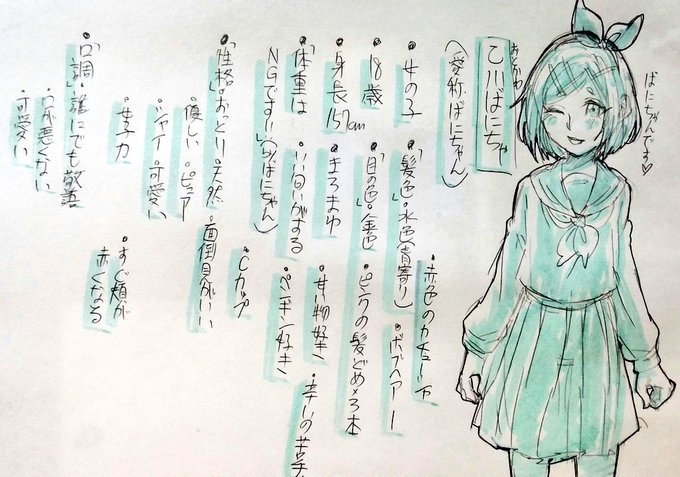 ばにちゃんです♡
おとかわ
乙川ばにちゃ
(愛称、ばにちゃん)
・女の子
・18歳
・身長157cm
・「体重は
NGですー!(byばにちゃん)
・「性格」おっとり・天然
・優しい・ピュア
・シャイ・可愛い
・女子力
・「口調」・誰にでも敬語
・口が悪くない
・可愛い
・「髪色」水色(青寄り)
・「目の色」金色
・まろまゆ
・いい匂いがする
・面倒見がいい
・赤色の
・ボブヘアー
・ピンクの髪どめ×3本
・甘い物好き
・ペンギン好き
・Cカップ
・すぐ頬が
赤くなる
・辛いの苦手